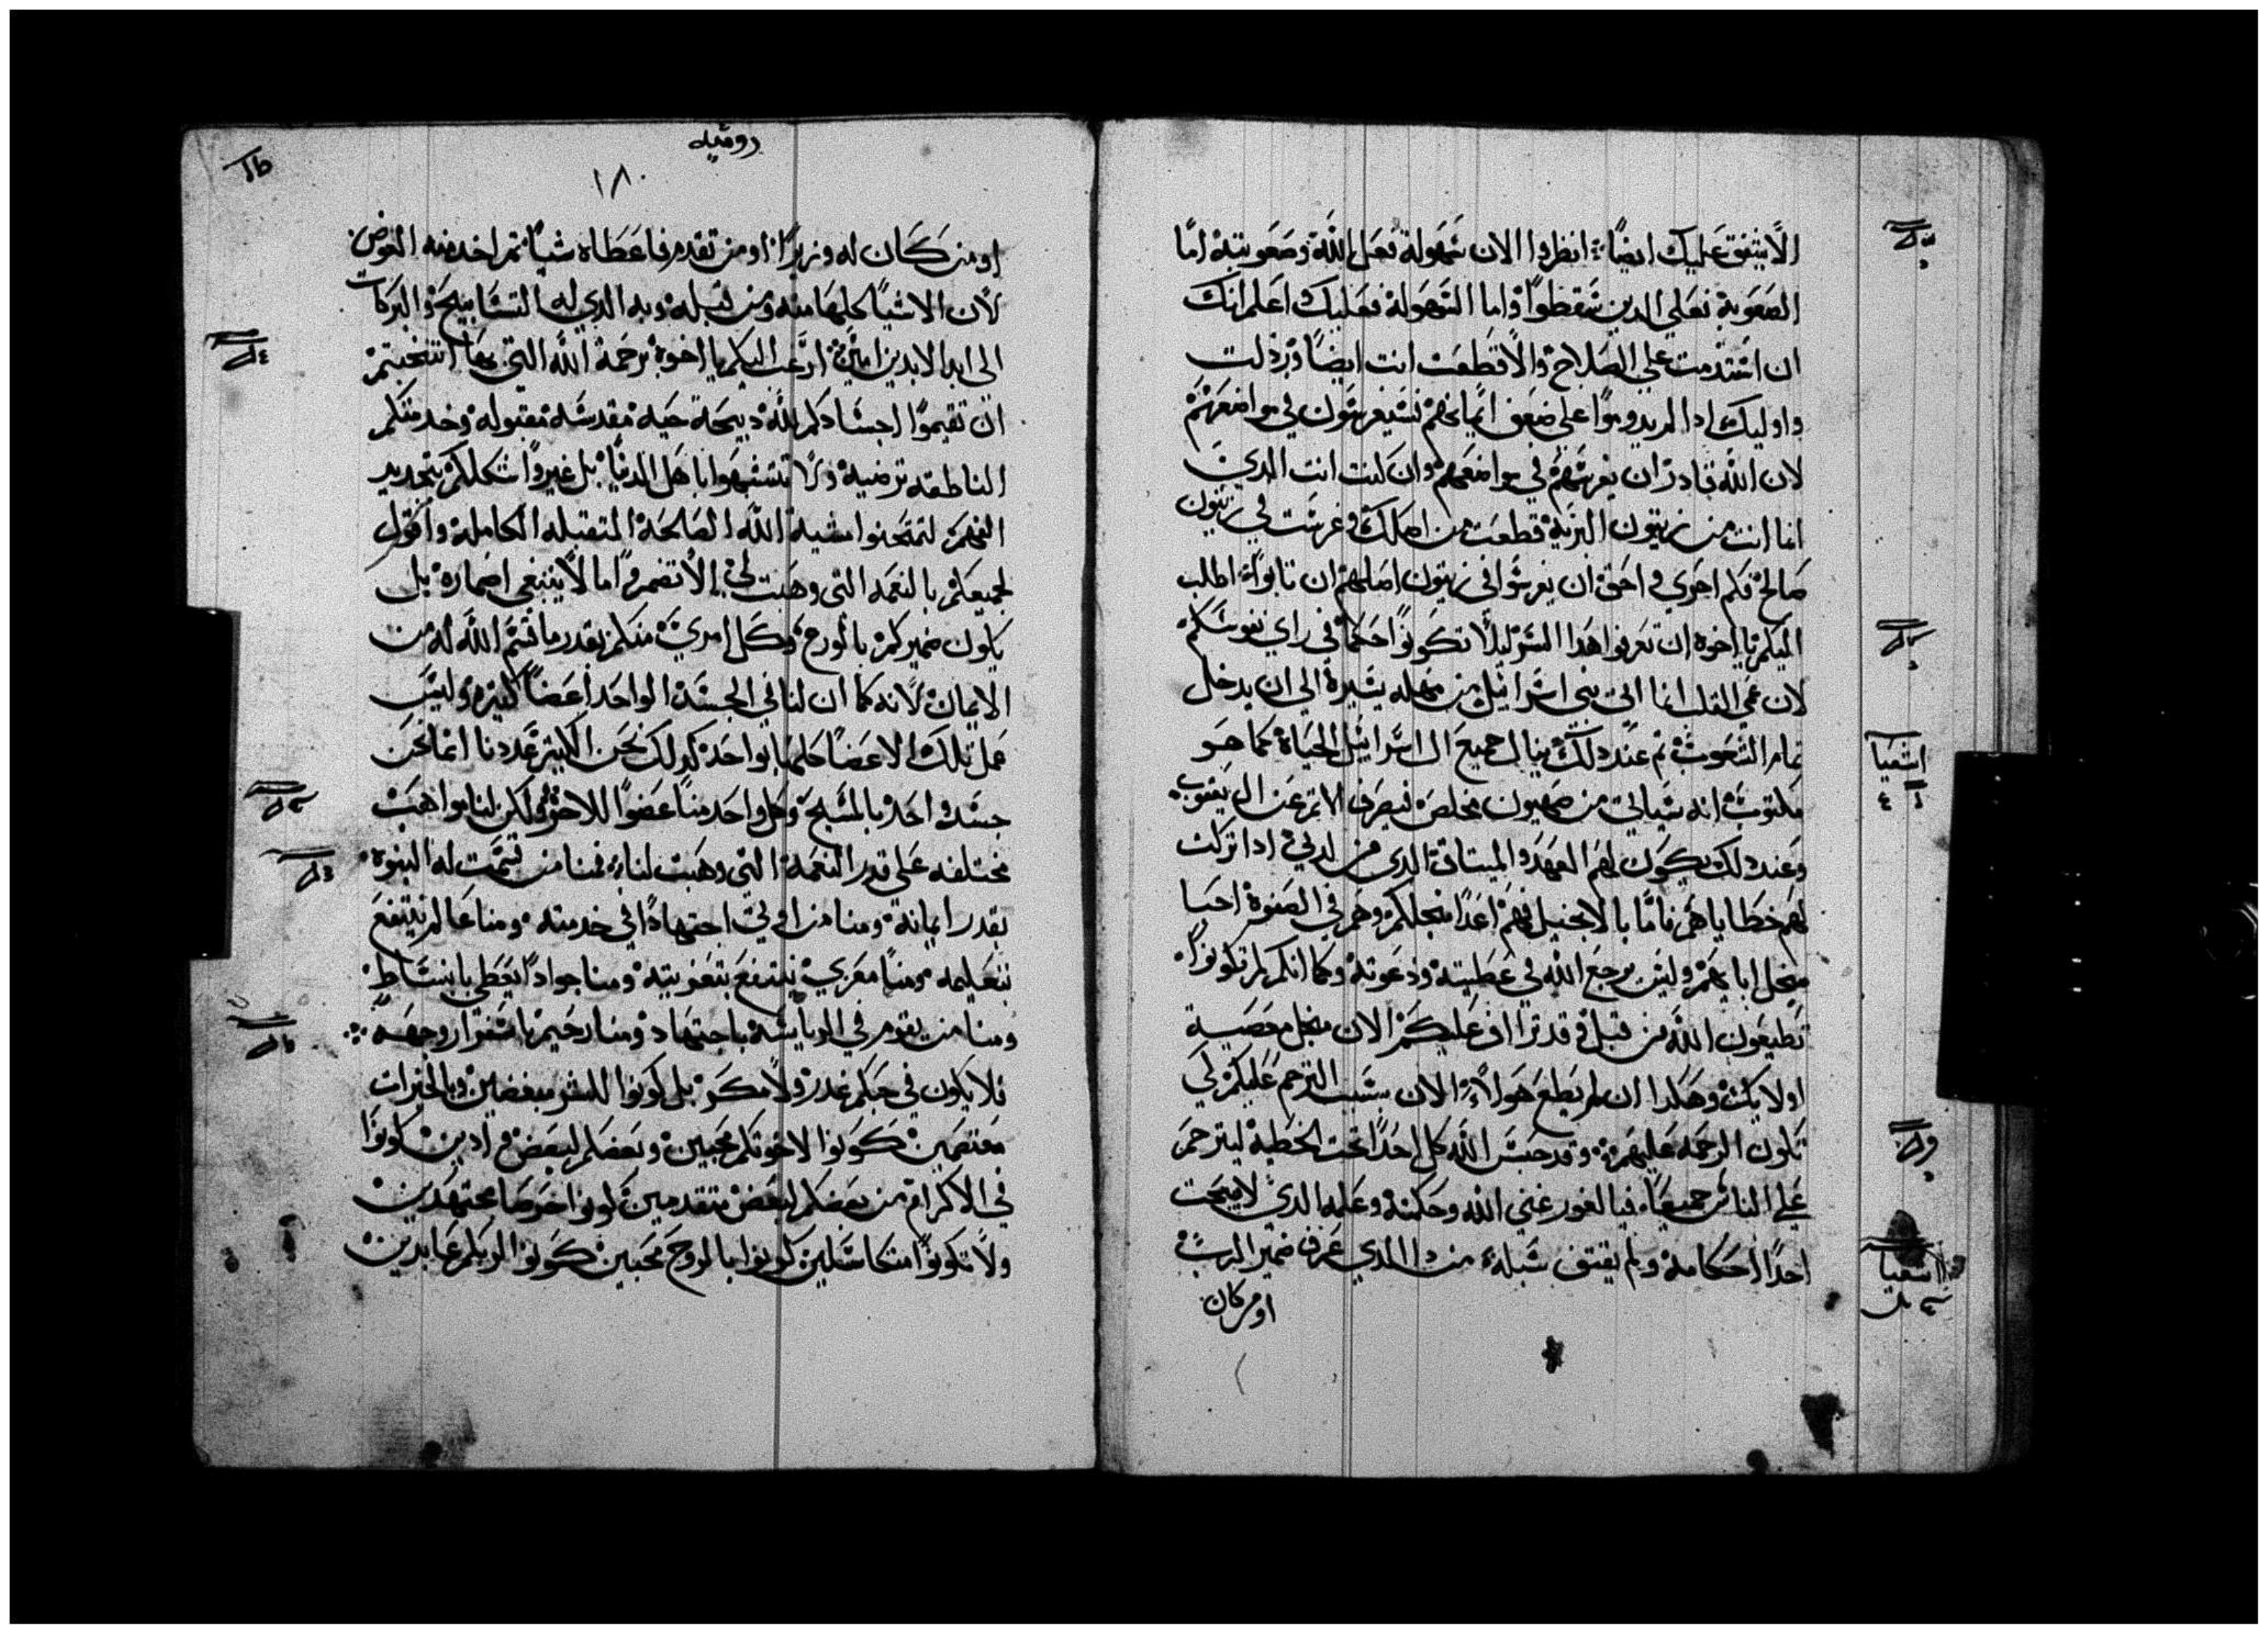 الا يشفق عليك ايضا انظروا الان سهولة فعل الله وصعوبته اما
الصعوبة فعلي الدين سقطوا واما السهولة فعليك اعلم انك
ان استدمت علي الصلاح والا قطعت انت ايضا ورذلت
واوليك ادا لم يدوموا على ضعف ايمانهم سيغرسون في مواضعهم
لان الله قادر ان يغرسهم في مواضعهم وان كنت انت الدي
انما انت من زيتون البرية قطعت من اصلك وغرست في زيتون
صالح فكم احري واحق ان يغرسوا في زيتون اصلهم ان تابوا اطلب
اليكم يا اخوه ان تعرفوا هدا السر ليلا تكونوا حكما في راي نفوسكم
لان عمي القلب انما اتى بني اسرائيل من مهله يسيرة الى ان يدخل
تمام الشعوب ثم عند دلك ينال جميع ال اسراييل الحياة كما هو
مكتوب انه سياتي من صهيون مخلص فيصرف الاثم عن ال يعقوب
وعند دلك يكون لهم العهد والميتاق الدي من لدني ادا تركت
لهم خطاياهم فاما بالانجيل فهم اعدا من اجلكم وهم في الصفوة احبا
من اجل ابايهم وليس يرجع الله في عطيته ودعوته وكما انكم لم تكونوا
تطيعون الله من قبل وقد تراف عليكم الان من اجل معصية
اولايك وهكدا ان لم يطع هولاء الان بسبب الترحم عليكم لكي
تكون الرحمه عليهم وقد حبس الله كل احدا تحت الخطية ليترحم
علي الناس جميعا فيا لغور غني الله وحكمته وعلمه الدي لا يبحت
احدا احكامه ولم يقتف سبله من دا الدي عرف ضمير الرب
او من كان
اشعيا
اشعيا
روميه
١٨٠
او من كان له وزيرا او من تقدم فاعطاه شيا ثم اخد منه العوض
لان الاشيا كلها منه ومن قبله وبه الدي له التسابيح والبركات
الى ابد الابدين امين ارغب اليكم يا اخوة برحمة الله التي بها انتخبتم
ان تقيموا اجسادكم لله دبيحة حية مقدسة مقبوله وخدمتكم
الناطقه ترضيه ولا تتشبهوا باهل الدنيا بل غيروا شكلكم بتجديد
الفهم لتمتحنوا مشية الله الصالحة المتقبله الكاملة واقول
لجميعكم بالنعمه التي وهبت لي الا تضمروا ما لا ينبغي اضماره بل
يكون ضميركم بالورع وكل امري منكم بقدر ما قسم الله له من
الايمان لانه كما ان لنا في الجسد الواحد اعضا كثيره وليس
عمل تلك الاعضا كلها بواحد كدلك نحن الكثير عددنا انما نحن
جسد واحد بالمسيح وكل واحد منا عضوا للاخر ولكن لنا مواهب
مختلفه علي قدر النعمة التي وهبت لنا فمنا من قسمت له النبوة
بقدر ايمانه ومنا من اوتي اجتهادا في خدمته ومنا عالم ينتفع
بتعليمه ومنا معزي ينتفع بتعزيته ومنا جوادا يعطي بانبساط
ومنا من يقوم في الرياسة باجتهاد ومنا رحيم باسفرار وجهه
فلا يكون في حبكم غدر ولا مكر بل كونوا للشر مبغضين وبالخيرات
معتصمين كونوا لاخوتكم محبين وبعضكم لبعض وادين كونوا
في الاكرام من بعضكم لبعض متقدمين كونوا حرصا مجتهدين
ولا تكونوا متكاسلين كونوا بالروح محبين كونوا لربكم عابدين